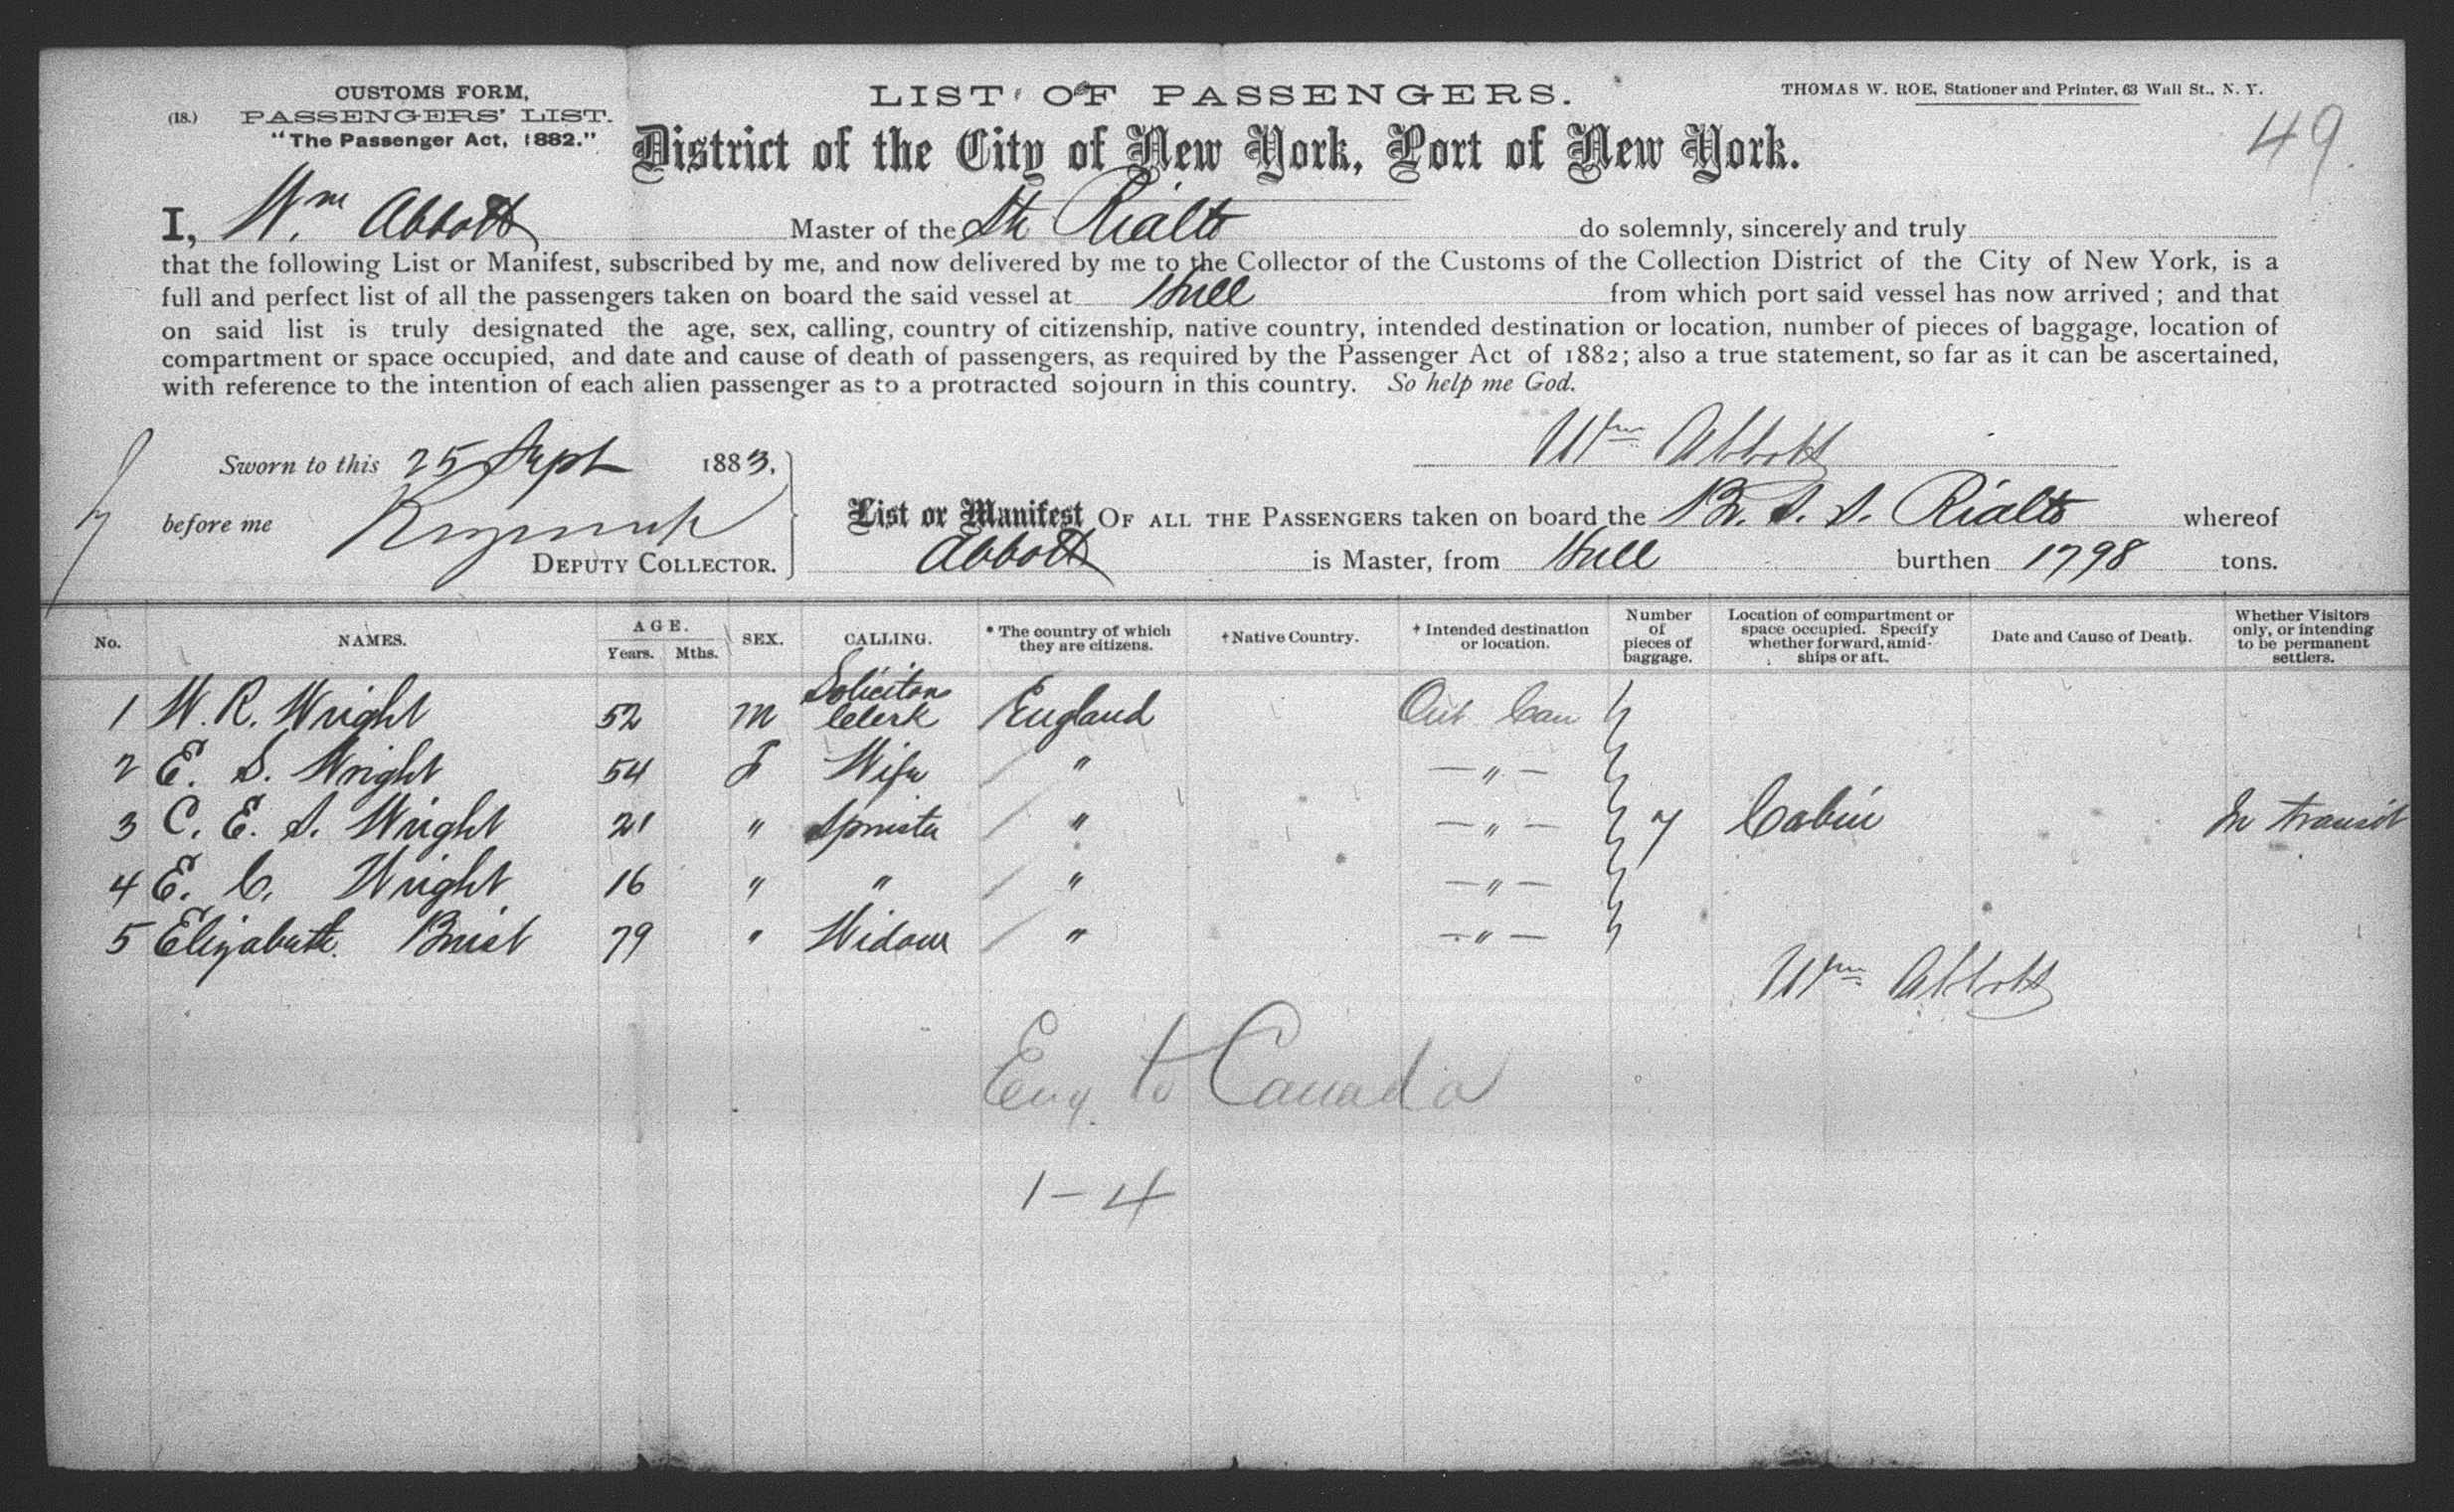 CUSTOMS FORM,
(18.) PASSENGERS' LIST.
"The Passenger Act, 1882."
LIST OF PASSENGERS.
THOMAS W. ROE, Stationer and Printer, 63 Wall St., N. Y.
District of the City of New York, Port of New York.
49.
I, Wm Abbott Master of the Str Rialto do solemnly, sincerely and truly
that the following List or Manifest, subscribed by me, and now delivered by me to the Collector of the Customs of the Collection District of the City of New York, is a
full and perfect list of all the passengers taken on board the said vessel at Hull from which port said vessel has now arrived; and that
on said list is truly designated the age, sex, calling, country of citizenship, native country, intended destination or location, number of pieces of baggage, location of
compartment or space occupied, and date and cause of death of passengers, as required by the Passenger Act of 1882; also a true statement, so far as it can be ascertained,
with reference to the intention of each alien passenger as to a protracted sojourn in this country. So help me God.
Wm Abbott
Sworn to this 25 Sept 1883,
before me
DEPUTY COLLECTOR.
List or Manifest OF ALL THE PASSENGERS taken on board the Br. S. S. Rialto whereof
Abbott is Master, from Hull burthen 1798 tons.
No. NAMES. AGE. Years. Mths. SEX. CALLING. * The country of which they are citizens. † Native Country. † Intended destination or location. Number of pieces of baggage. Location of compartment or space occupied. Specify whether forward, amidships or aft. Date and Cause of Death. Whether Visitors only, or intending to be permanent settlers.
1 W. R. Wright 52 M Solicitors Clerk England Ont Can
2 E. S. Wright 54 F Wife " — " —
3 C. E. S. Wright 21 " Spinster " — " — 7 Cabin In transit
4 E. C. Wright 16 " " " — " —
5 Elizabeth 79 " Widow " — " —
Wm Abbott
Eng. to Canada
1-4